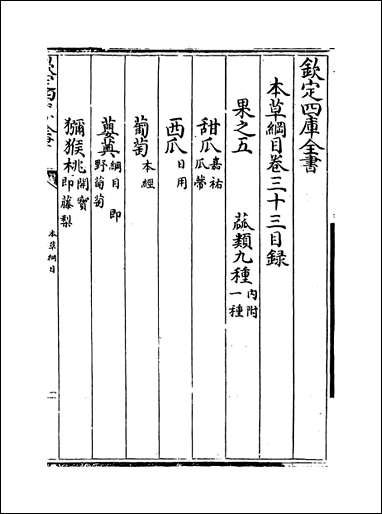 欽定四庫全書
本草綱目卷三十三目録
果之五　蓏類九種內附一種
甜瓜嘉祐瓜蔕
西瓜日用
葡萄本經
蘡薁綱目即野葡萄
獼猴桃開寶即藤梨
本草綱目